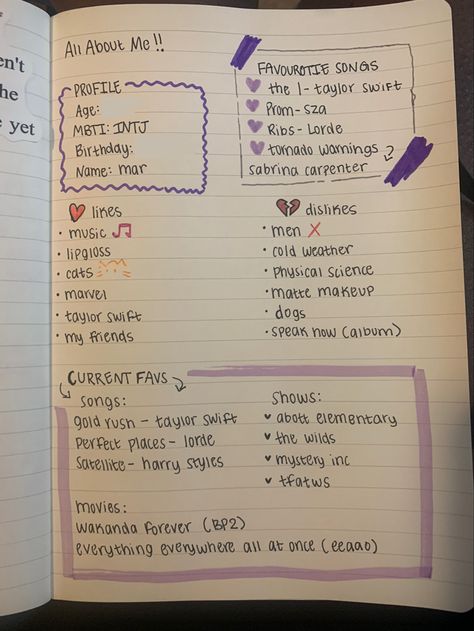 n't
he
e yet
All About Me !!
PROFILE
Age:
MBTI: INTJ
Birthday:
Name: mar
FAVOUROTIE SONGS
the 1 - taylor swift
Prom - sza
Ribs - Lorde
tornado warnings
sabrina carpenter
likes
• music
• lipgloss
• cats
• marvel
• taylor swift
• my friends
dislikes
• men X
• cold weather
• physical science
• matte makeup
• dogs
• speak now (album)
CURRENT FAVS
songs:
gold rush - taylor swift
perfect places - lorde
satellite - harry styles
shows:
abott elementary
the wilds
mystery inc
tfatws
movies:
wakanda forever (BP2)
everything everywhere all at once (eeaao)